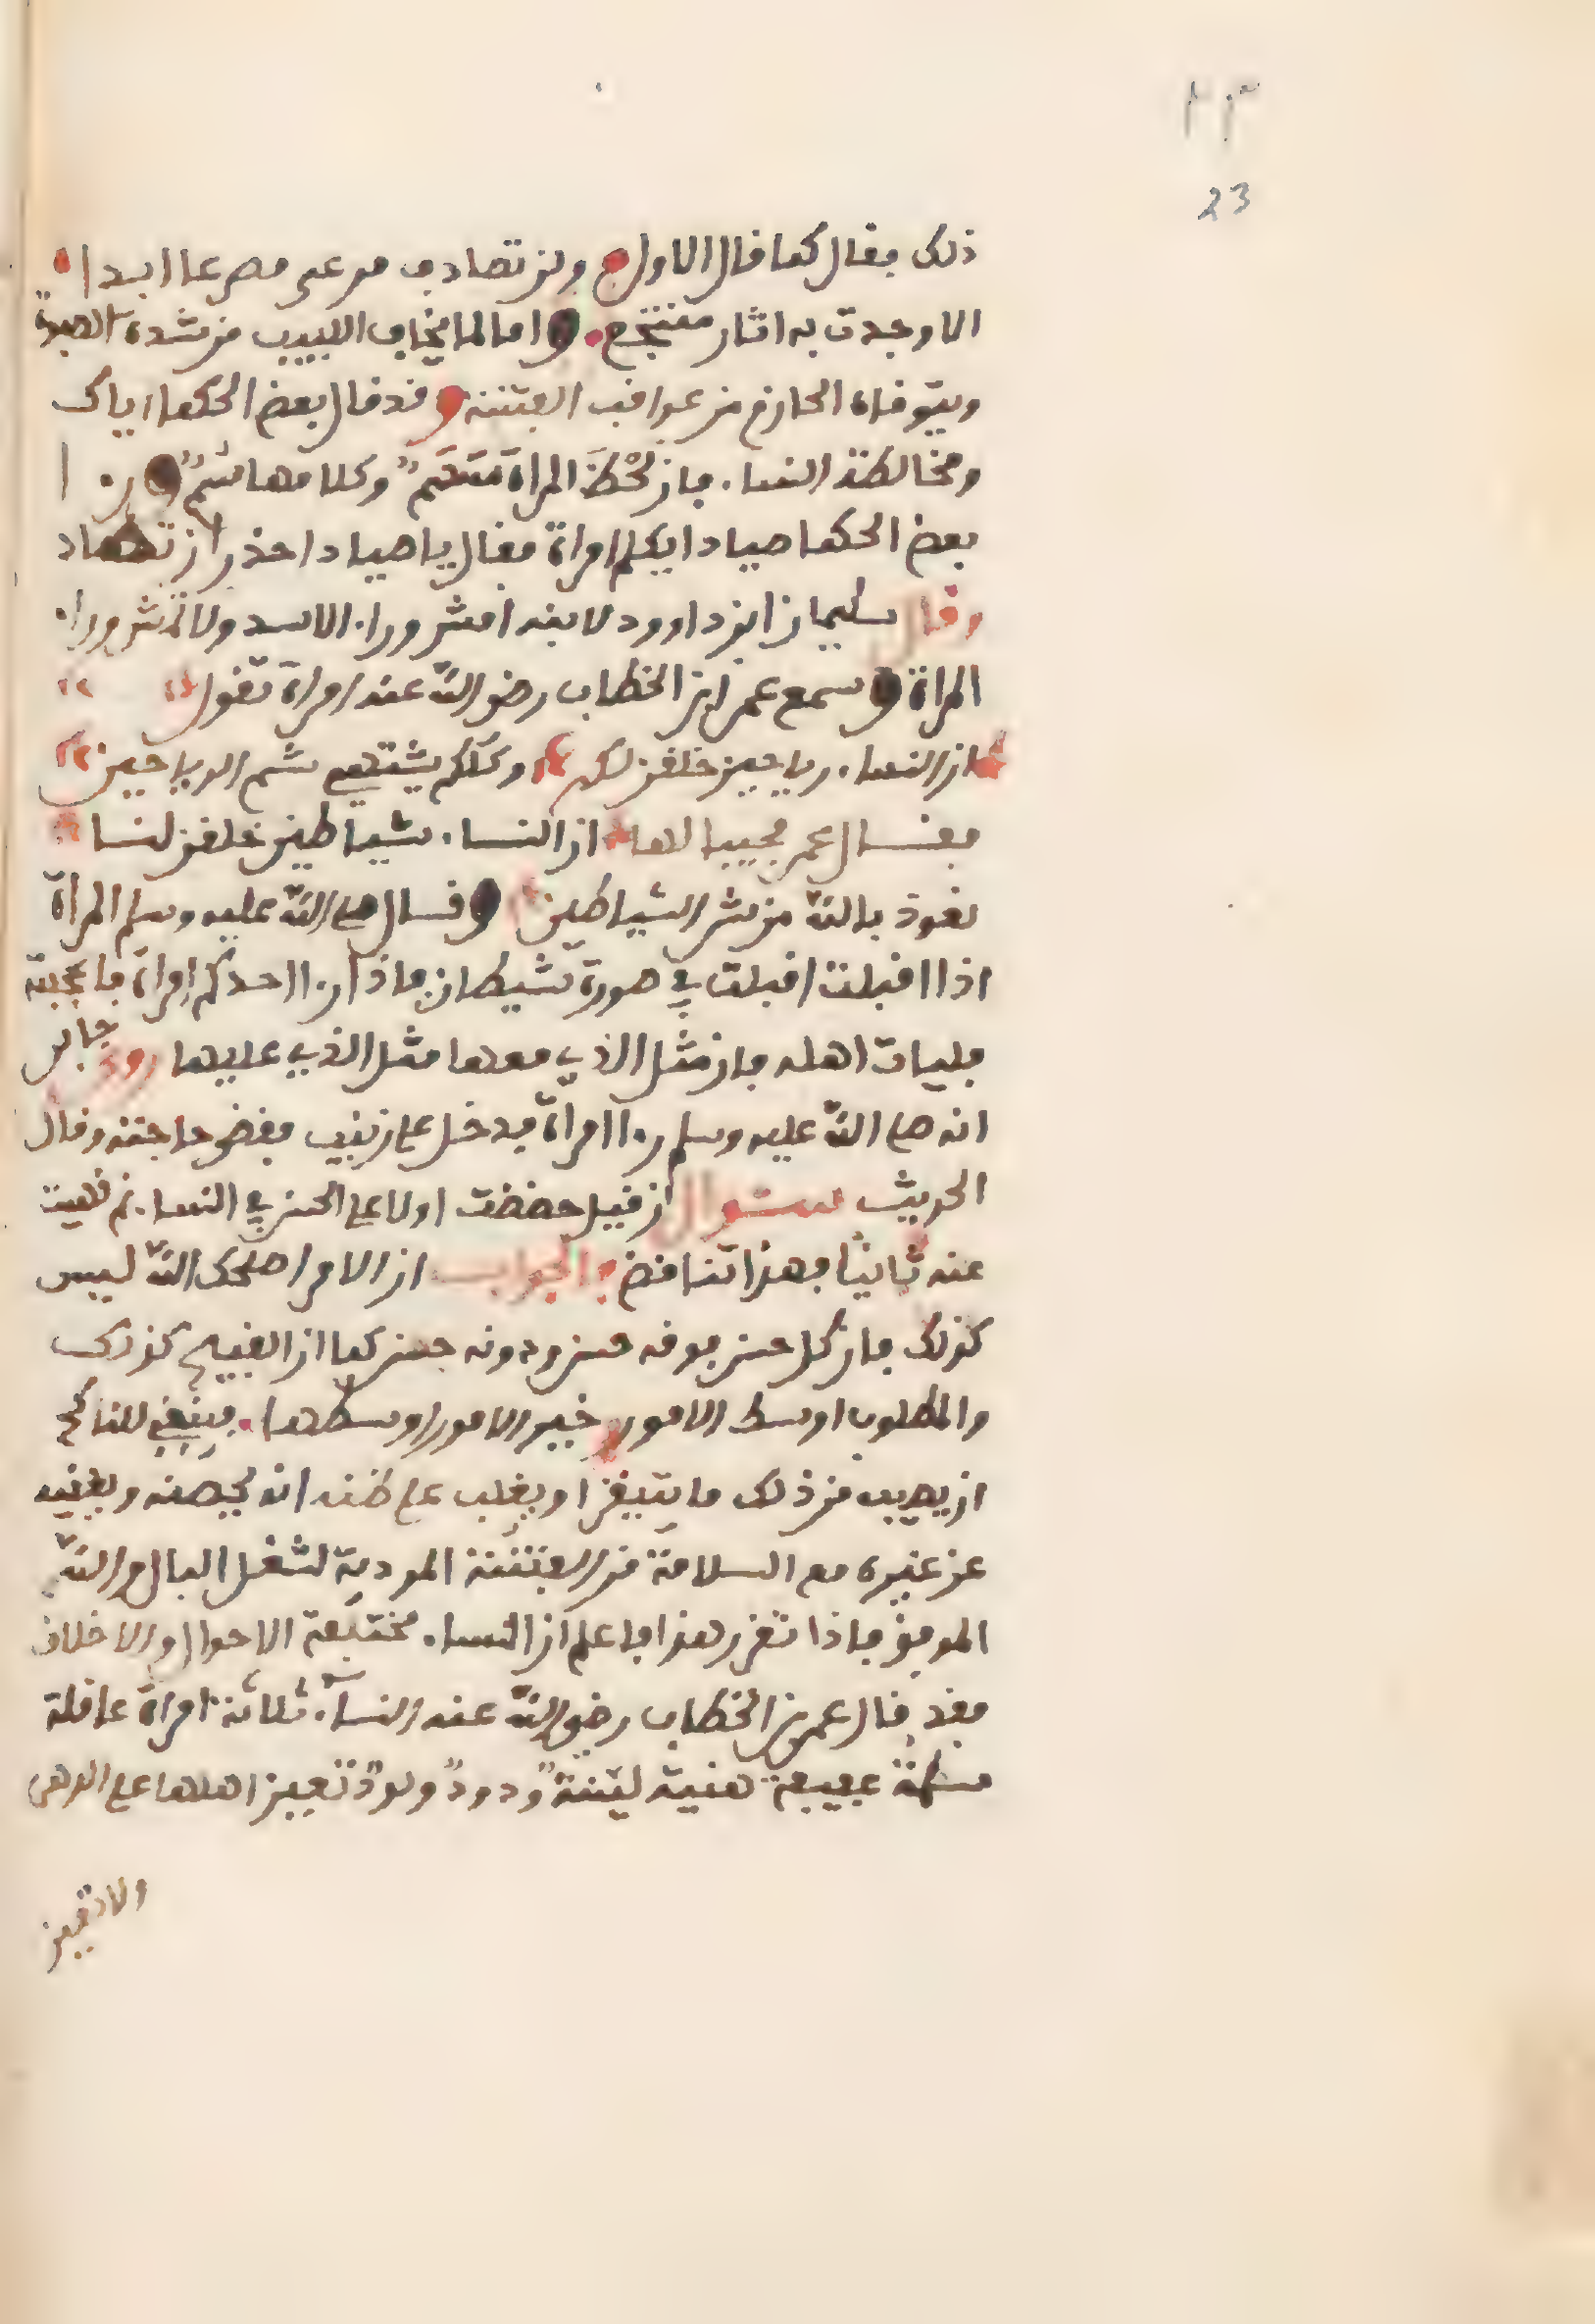 ٢٣
23
ذلك فقال كما قال الاول ولن تصادف مرعى مصرعا ابدا
الا وجدت به اثار منتجع. واما لما يخاف اللبيب من شدة
ويتوقاه الحازم من عواقب الفتنة وقد قال بعض الحكما اياك
ومخالطة النسا. فان لحْظَ المراة سَهْم وكلامها سُمّ ورءا
بعض الحكما صيادا يكلم امراة فقال يا صياد احذر ان تصاد
وقال سليمان ابن داوود لابنه امش ورا. الاسد ولا تمش ورا.
المراة وسمع عمر ابن الخطاب رضى الله عنه امراة تقول
ان النسا. رياحين خلقن لكم وكلكم يشتهي شم الرياحين
فقال عمر مجيبا لها ان النسا. شياطين خلقن لنسا
نعوذ بالله من شر الشياطين وقال صلى الله عليه وسلم المرأة
اذا اقبلت اقبلت في صورة شيطان فاذا رءا احدكم امراة فاعجبته
فليات اهله فان مثل الذي معها مثل الذي عليها روى جابر
انه صلى الله عليه وسلم رءا امراة فدخل على زينب فقضى حاجته وقال
الحديث سوال ان قيل حضضت اولا على الحسن في النسا. ثم نهيت
عنه ثانيا فهذا تناقض الجواب ان الامر اصلحك الله ليس
كذلك فان كل حسن فوقه حسن ودونه حسن كما ان القبيح كذلك
والمطلوب اوسط الامور وخير الامور اوسطها. فينبغي للناكح
ان يصيب من ذلك ما يتيقن او يغلب على ظنه انه يحصنه ويغنيه
عن غيره مع السلامة من الفتنة المودية لشغل البال والله
الموفق فاذا تقرر هذا فاعلم ان النسا. مختلفة الاحوال والاخلاق
فقد قال عمر بن الخطاب رضي الله عنه النسا. ثلاثة امراة عاقلة
مسلمة عفيفة هنية لينة ودود ولود تعين اهلها على الدهر